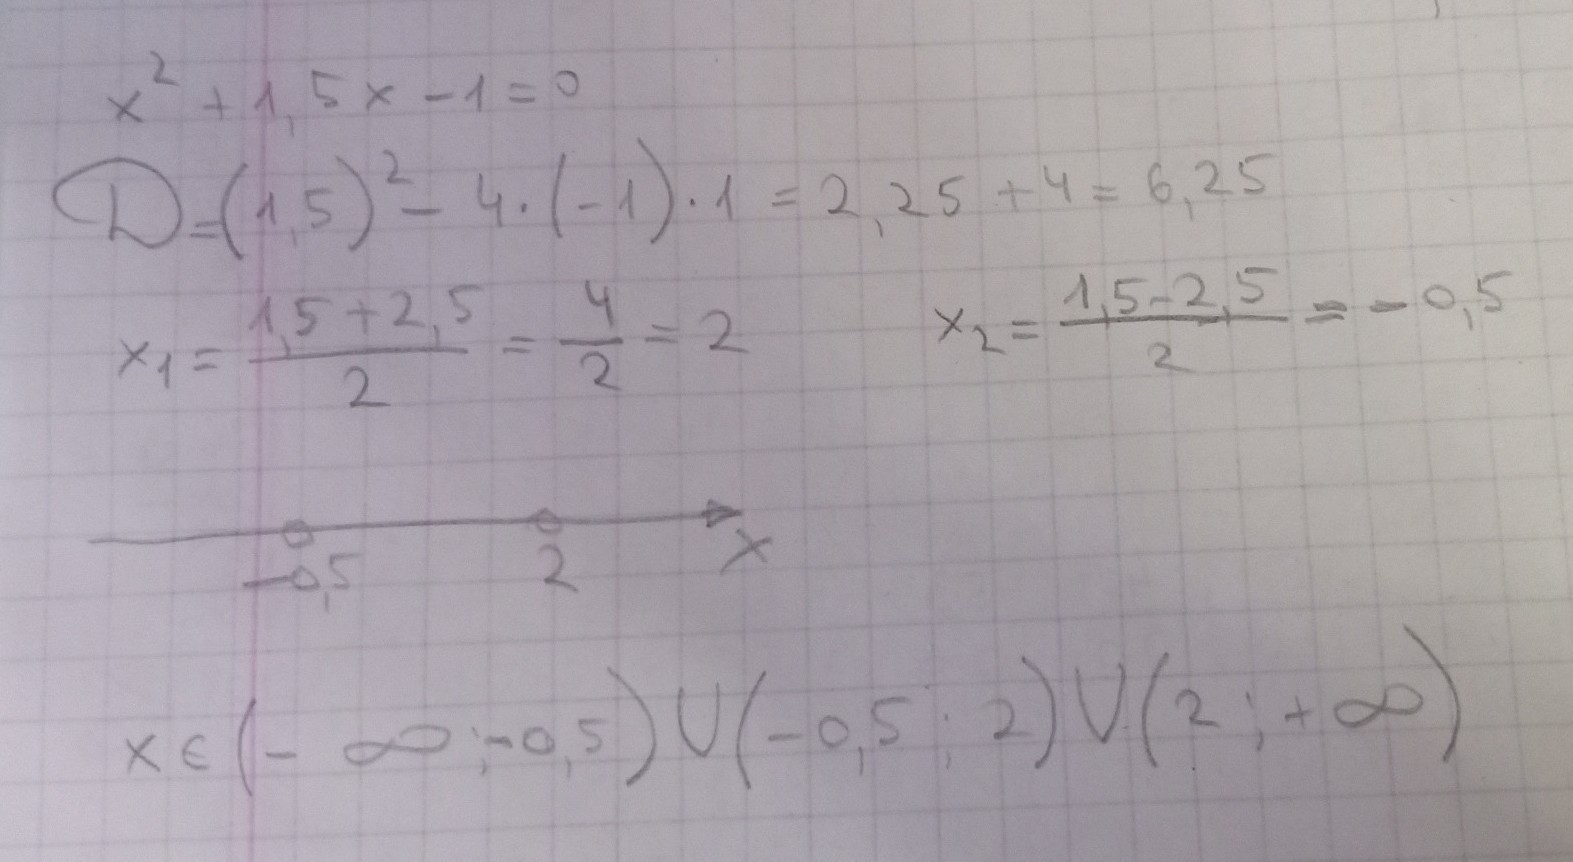 x² + 1,5x - 1 = 0
D = (1,5)² - 4·(-1)·1 = 2,25 + 4 = 6,25
x₁ = (1,5 + 2,5)/2 = 4/2 = 2 x₂ = (1,5 - 2,5)/2 = -0,5
-0,5 2 x
x ∈ (-∞; -0,5) ∪ (-0,5; 2) ∪ (2; +∞)